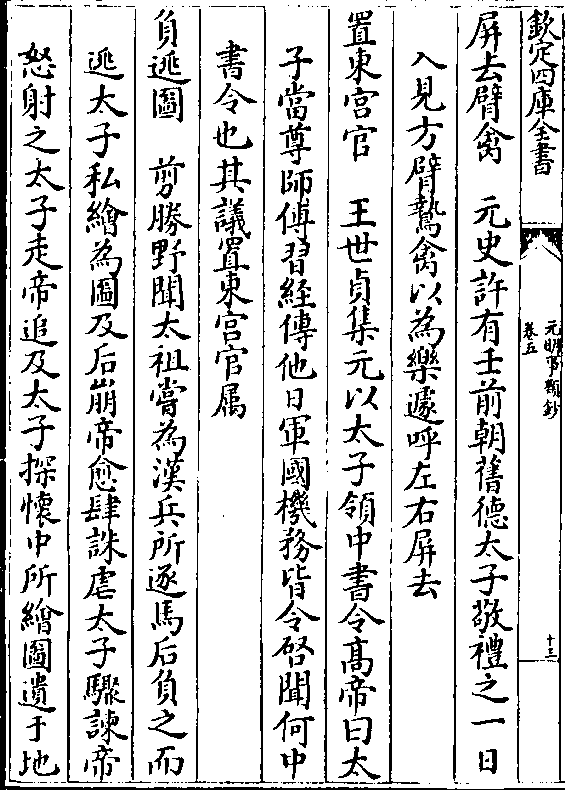 欽定四庫全書
元明事類鈔
卷五
十三
屏去臂禽　元史許有壬前朝舊德太子敬禮之一日
入見方臂鷙禽以為樂遽呼左右屏去
置東宮官　王世貞集元以太子領中書令高帝曰太
子當尊師傅習經傳他日軍國機務皆令啓聞何中
書令也其議置東宮官属
負逃圖　剪勝野聞太祖嘗為漢兵所逐馬后負之而
逃太子私繪為圖及后崩帝愈肆誅虐太子驟諫帝
怒射之太子走帝追及太子探懷中所繪圖遺于地